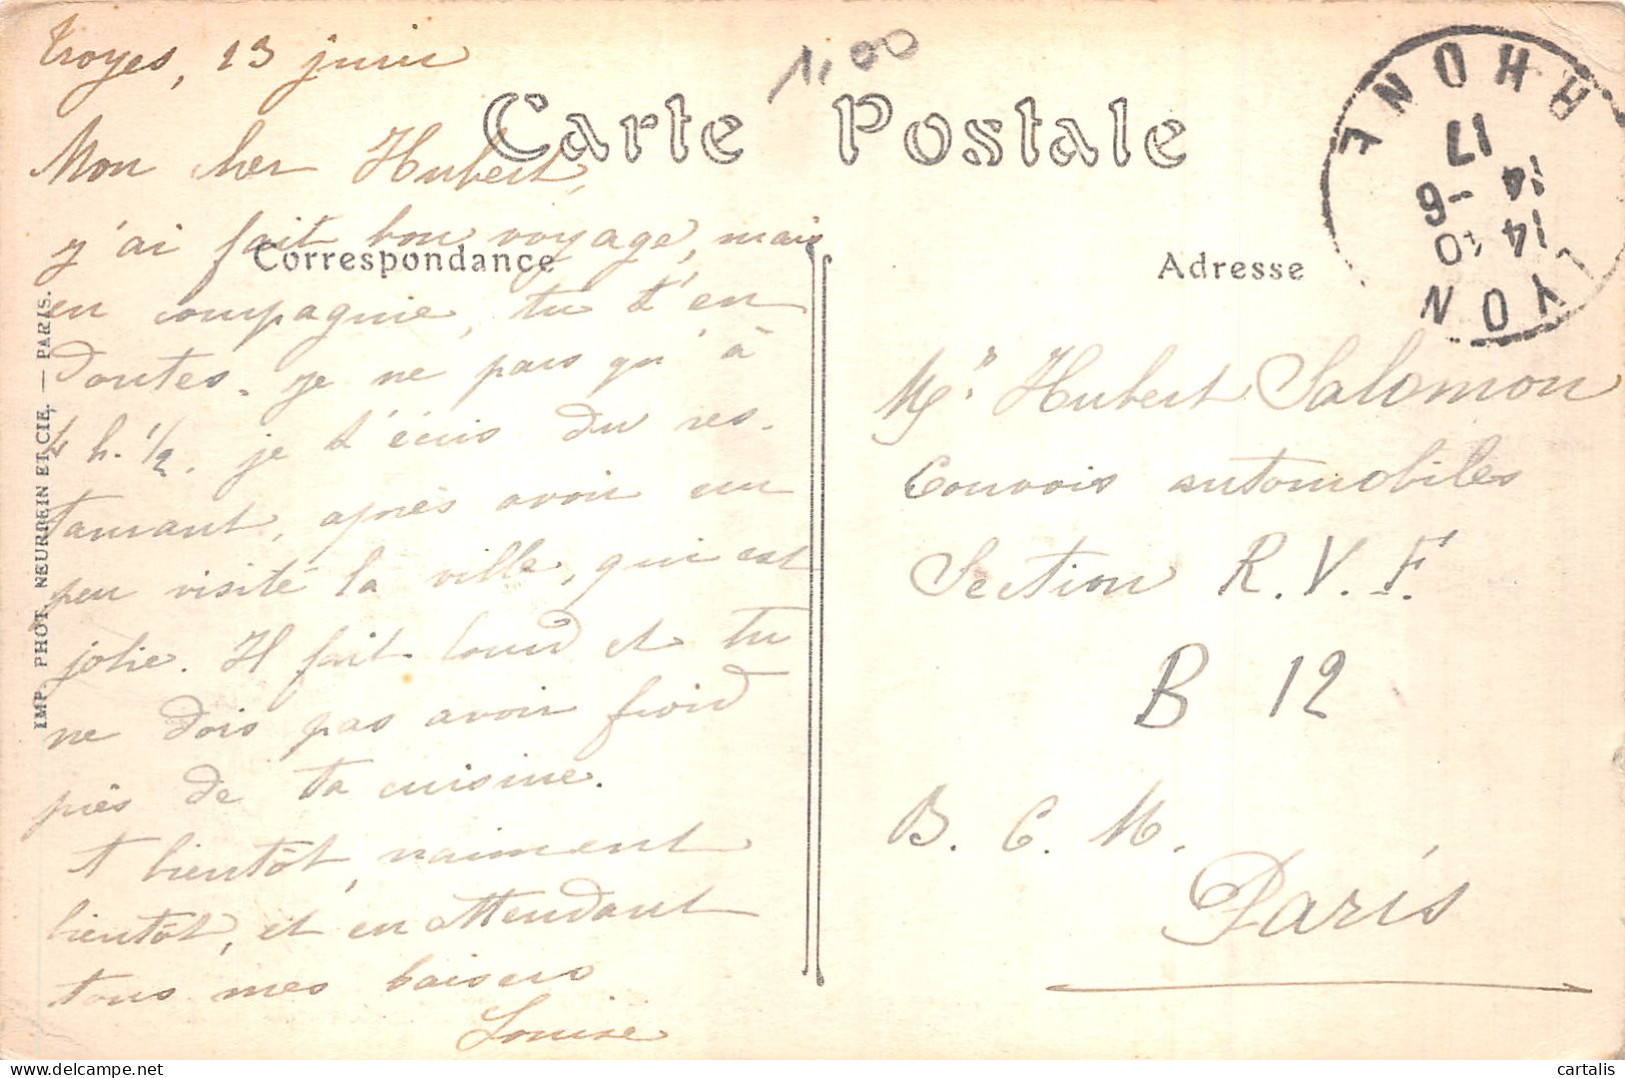 Troyes, 13 juin
1,00
Carte Postale
Mon cher Hubert,
j'ai fait bon voyage, mais
Correspondance
en compagnie, tu t'en
doutes. je ne pars qu'à
4 h. 1/2. je t'écris du res-
taurant, après avoir un
peu visité la ville, qui est
jolie. Il fait lourd et tu
ne dois pas avoir froid
près de ta cuisine.
A bientôt, vraiment
bientôt, et en attendant
tous mes baisers
Louise
IMP. PHOT. NEURDEIN ET CIE. — PARIS.
RHONE
17
14 -6
14 10
LYON
Adresse
Mr. Hubert Salomon
Convois automobiles
Section R.V.F.
B 12
B. C. M.
Paris
cartalis